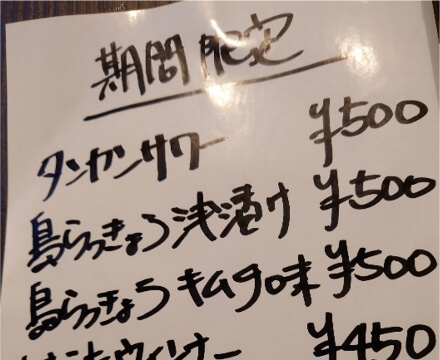 期間限定
タンカンサワー ¥500
島らっきょう浅漬け ¥500
島らっきょうキムチ味 ¥500
ウィンナー ¥450